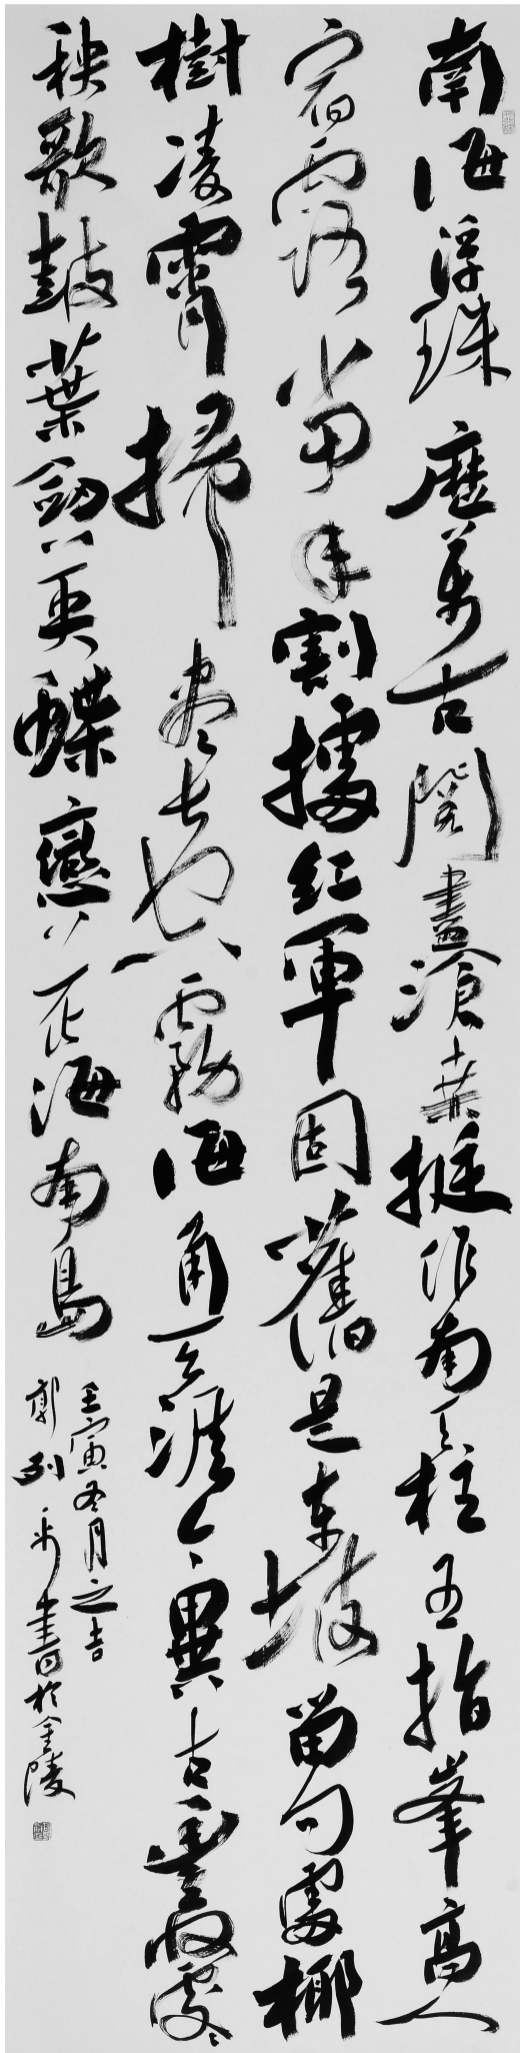 南海浮珠歷萬古閱盡滄桑挺作南天柱五指峯高人
宿露當年割據紅軍固舊是東坡留句處椰
樹凌霄掃盡長空霧海角天涯今異古豐收處處
秧歌鼓葉劍英蝶戀花海南島
壬寅冬月之吉
郭列平書於金陵